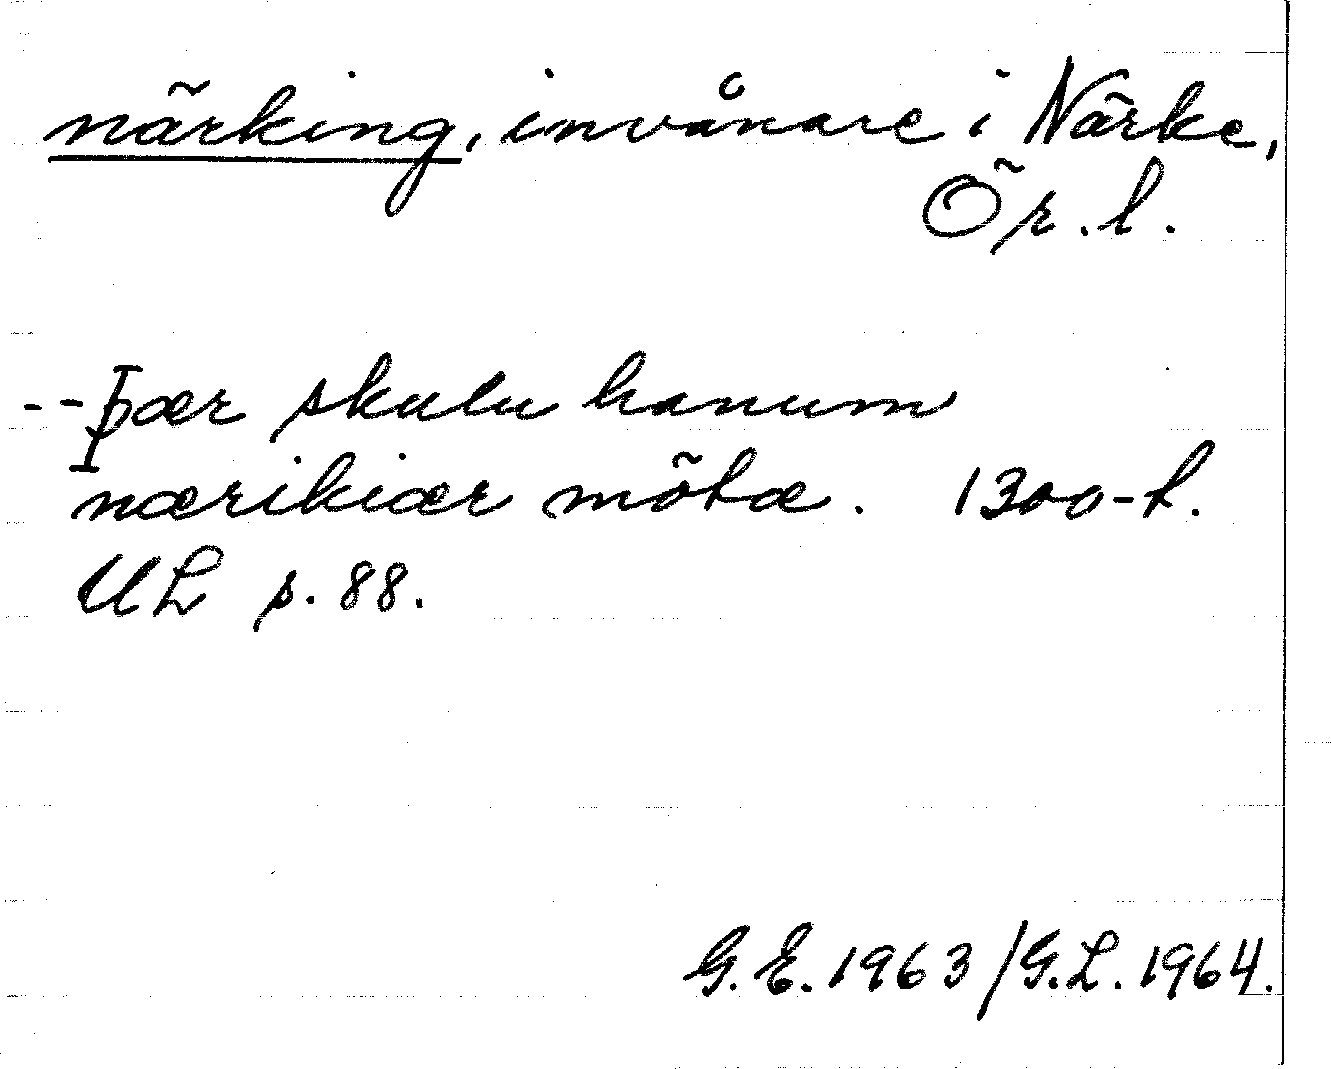 närking, invånare i Närke,
Ör. l.
--þær skulu hanum
nærikiær möta. 1300-t.
UL s. 88.
G.E. 1963/G.L. 1964.